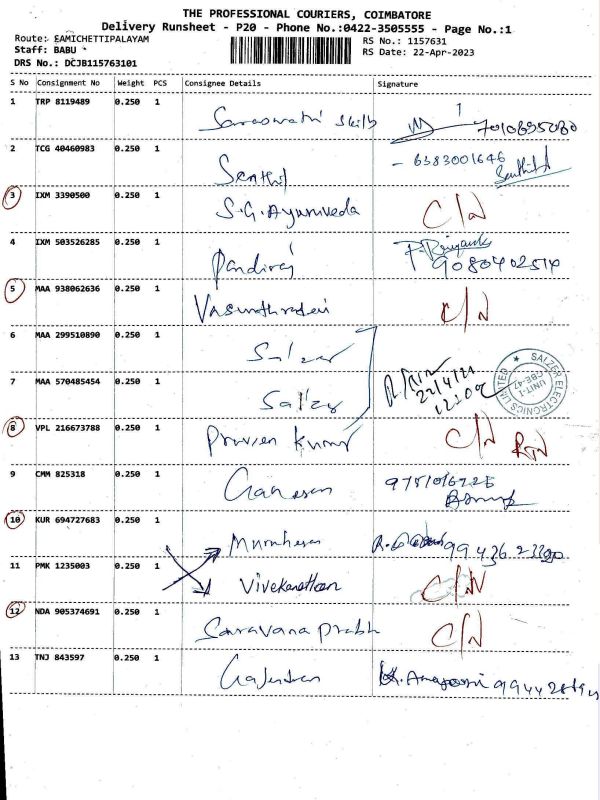 THE PROFESSIONAL COURIERS, COIMBATORE
Delivery Runsheet - P20 - Phone No.:0422-3505555 - Page No.:1
Route: EAMICHETTIPALAYAM
RS No.: 1157631
Staff: BABU
RS Date: 22-Apr-2023
DRS No.: DCJB115763101
S No Consignment No Weight PCS Consignee Details Signature
1 TRP 8119489 0.250 1 Saraswathi
2 TCG 40460983 0.250 1 Senthil - 6383001646
3 IXM 3390500 0.250 1 S.G. Ayurveda C/N
4 IXM 503526285 0.250 1 Pandiraj
5 MAA 938062636 0.250 1 C/N
6 MAA 299510890 0.250 1 Salzer
7 MAA 570485454 0.250 1 Salzer
SALZER ELECTRONICS LIMITED
UNIT-1
CBE-47
8 VPL 216673788 0.250 1 Praveen Kumar C/N
9 CMM 825318 0.250 1 Ganesan
10 KUR 694727683 0.250 1
11 PMK 1235003 0.250 1 C/N
12 NDA 905374691 0.250 1 Saravana prabh C/N
13 TNJ 843597 0.250 1 Gajendran